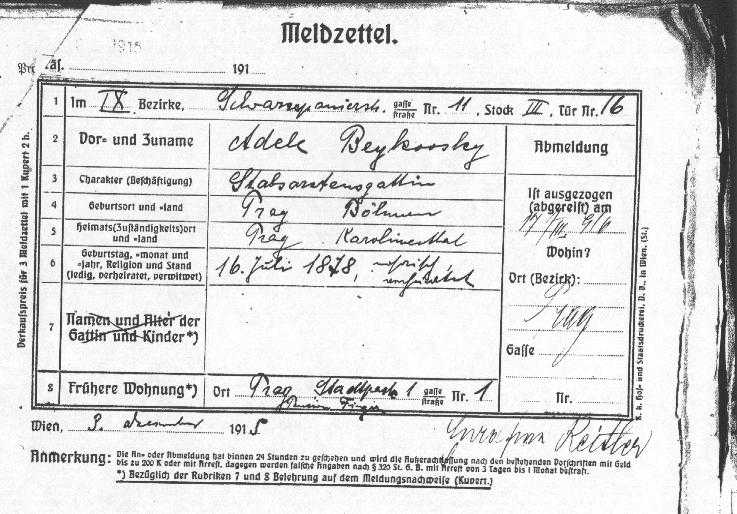 Meldzettel.
1915
Präs. 191
1 Im IX Bezirke, Schwarzspanierstr. gasse straße Nr. 11, Stock III, Tür Nr. 16
2 Vor- und Zuname Adele Beykovsky Abmeldung
3 Charakter (Beschäftigung) Stabsarztensgattin
4 Geburtsort und -land Prag Böhmen
Ist ausgezogen (abgereist) am
17/III 916
5 Heimats(Zuständigkeits)ort und -land Prag Karolinenthal
Wohin?
6 Geburtstag, -monat und -jahr, Religion und Stand (ledig, verheiratet, verwitwet) 16. Juli 1878, mosaisch verheiratet
Ort (Bezirk):
Prag
7 Namen und Alter der Gattin und Kinder*)
Gasse
8 Frühere Wohnung*) Ort Prag Stadtpark 1 gasse straße Nr. 1
Nr.
Wien, 3. dezember 1915
Reitler
Anmerkung: Die An- oder Abmeldung hat binnen 24 Stunden zu geschehen und wird die Außerachtlassung nach den bestehenden Vorschriften mit Geld
bis zu 200 K oder mit Arrest, dagegen werden falsche Angaben nach § 320 St. G. B. mit Arrest von 3 Tagen bis 1 Monat bestraft.
*) Bezüglich der Rubriken 7 und 8 Belehrung auf dem Meldungsnachweise (Kuvert.)
Verkaufspreis für 3 Meldzettel mit 1 Kuvert 2 h.
K. k. Hof- und Staatsdruckerei, D. V., in Wien. (St.)